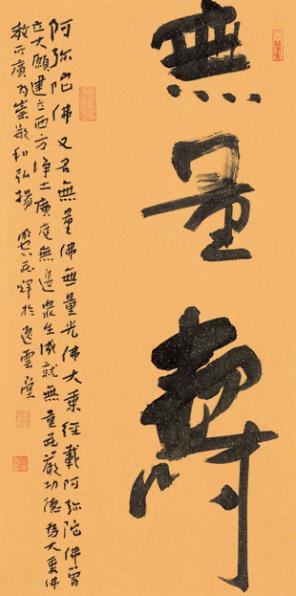 無量壽
阿弥陀佛又名無量佛無量光佛大乘經載阿弥陀佛曾
立大願建立西方淨土廣度無邊衆生成就無量莊嚴功德為大乘佛
教所廣为崇敬和弘揚 輝於逸雲堂